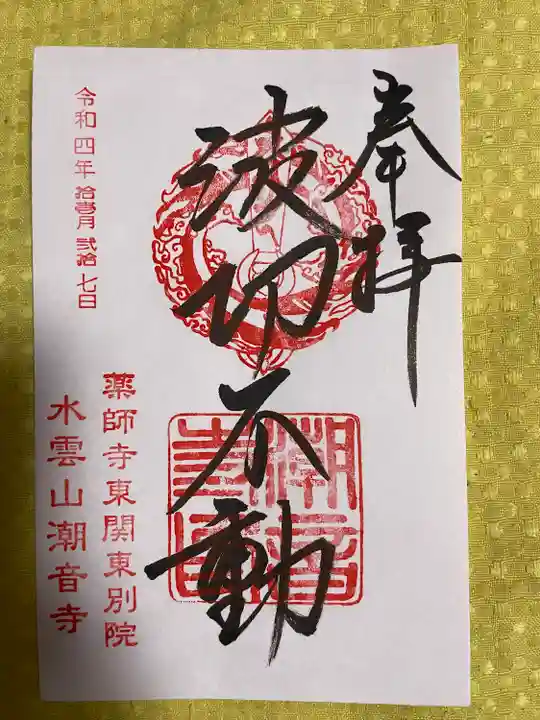 奉拝
波切不動
潮音寺
令和四年 拾壱月 弐拾七日
薬師寺東関東別院
水雲山潮音寺